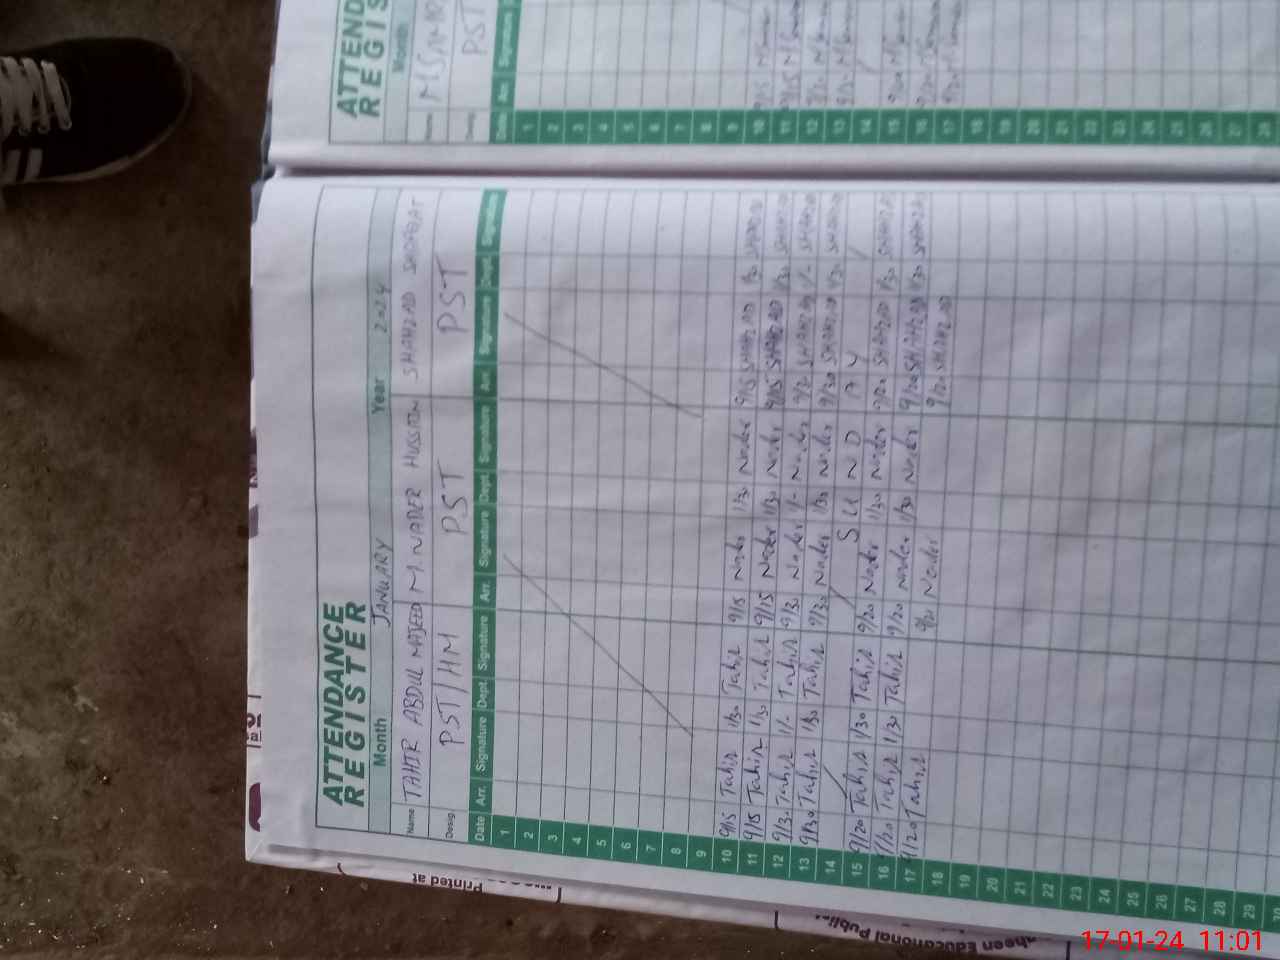 ATTENDANCE
REGISTER
Month JANUARY Year 2024
Name TAHIR ABDUL MAJEED M. NADER HUSSAIN SHAHZAD SHOFQAT
Desig. PST/HM PST PST
Date Arr. Signature Dept. Signature Arr. Signature Dept. Signature Arr. Signature Dept. Signature
1
2
3
4
5
6
7
8
9
10 9/15 Tahir 1/30 Tahir 9/15 Nader 1/30 Nader 9/15 SHAHZAD 1/30 SHAHZAD
11 9/15 Tahir 1/30 Tahir 9/15 Nader 1/30 Nader 9/15 SHAHZAD 1/30 SHAHZAD
12 9/30 Tahir 1/- Tahir 9/30 Nader 1/- Nader 9/30 SHAHZAD 1/- SHAHZAD
13 9/30 Tahir 1/30 Tahir 9/30 Nader 1/30 Nader 9/30 SHAHZAD 1/30 SHAHZAD
14 S U N D A Y
15 9/20 Tahir 1/30 Tahir 9/20 Nader 1/30 Nader 9/20 SHAHZAD 1/30 SHAHZAD
16 9/20 Tahir 1/30 Tahir 9/20 Nader 1/30 Nader 9/20 SHAHZAD 1/30 SHAHZAD
17 9/20 Tahir 9/20 Nader 9/20 SHAHZAD
18
19
20
21
22
23
24
25
26
27
28
29
30
ATTEND
REGIS
Month
PST
Date Arr. Signature
1
2
3
4
5
6
7
8
9
10 9/15
11 9/15
12
13
14
15
16
17
18
19
20
21
22
23
24
25
26
27
28
Printed at
heen Educational Publi
17-01-24 11:01